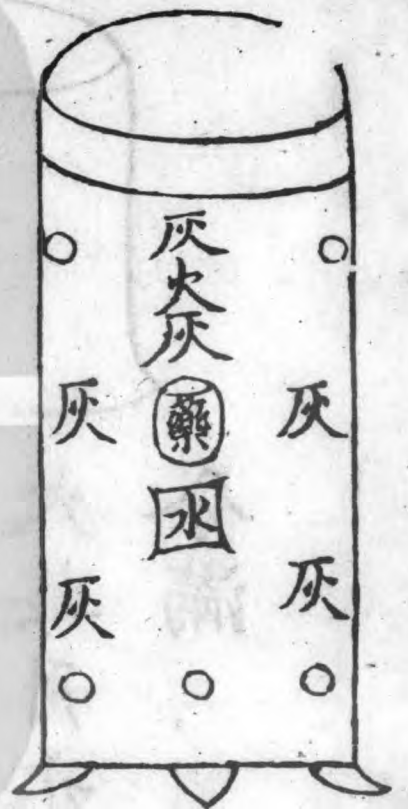 灰
火
灰
灰 藥 灰
水
灰 灰